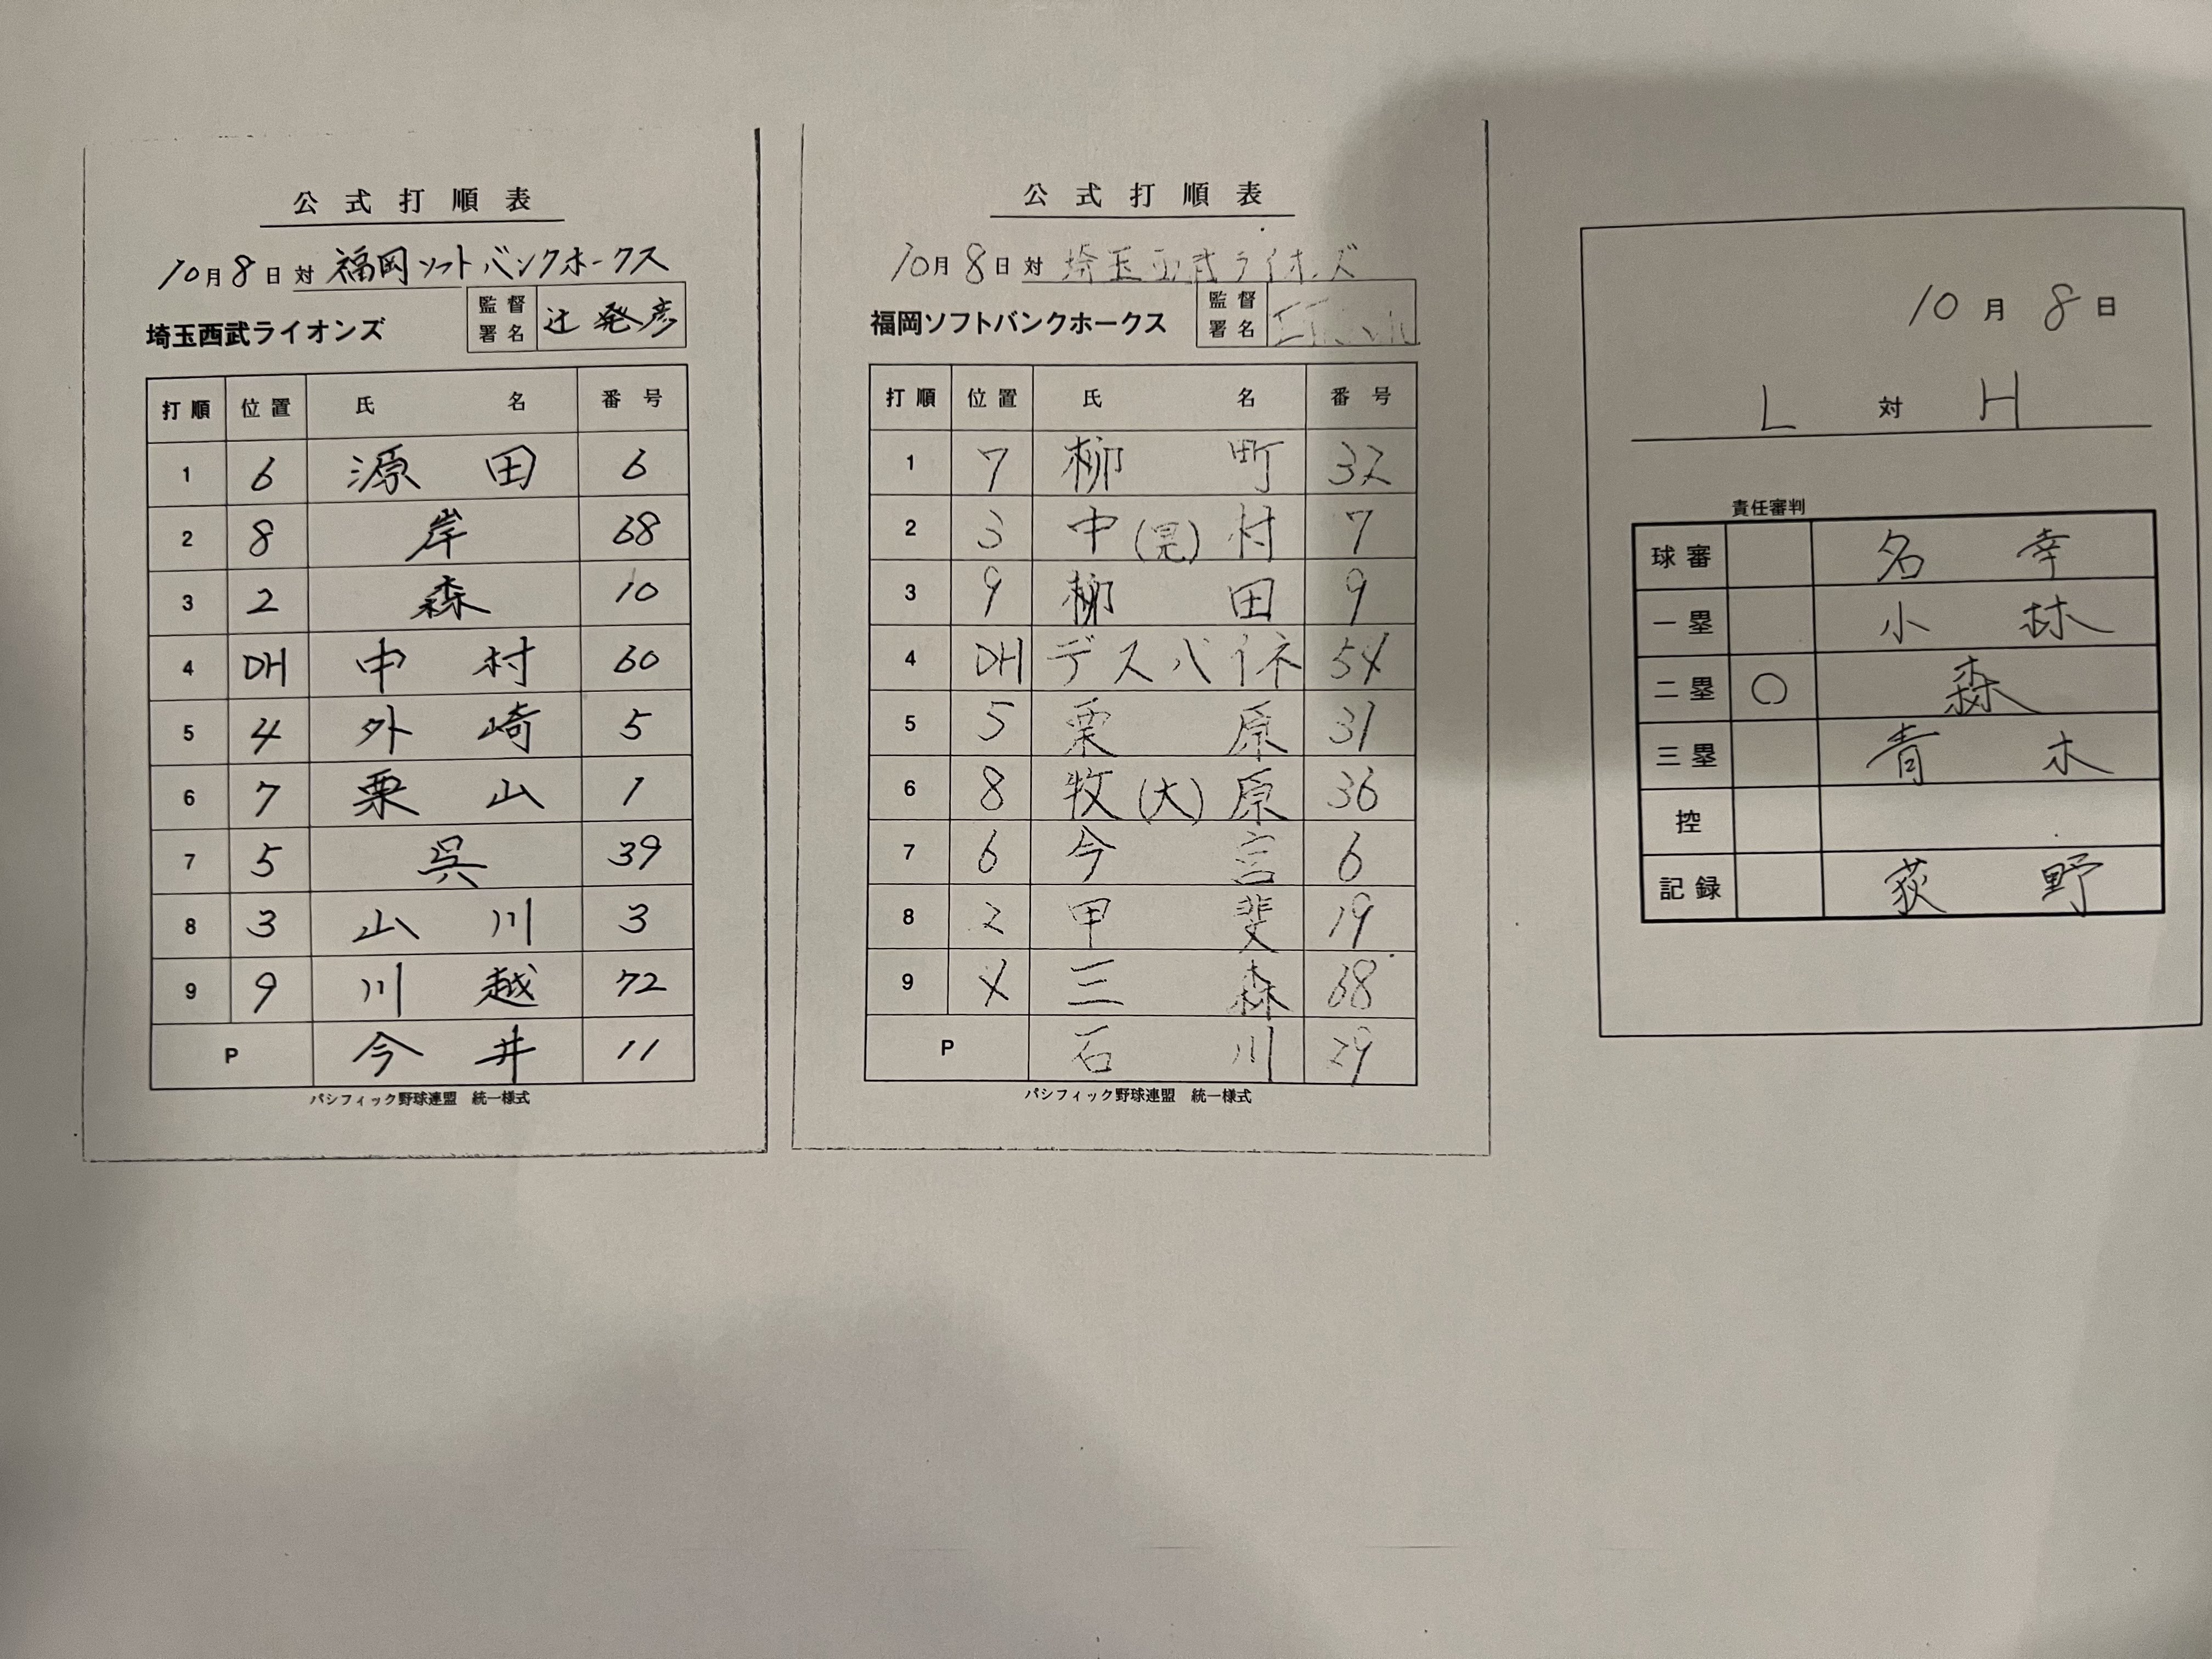 公式打順表
10月8日対 福岡ソフトバンクホークス
埼玉西武ライオンズ 監督署名 辻発彦
打順 位置 氏名 番号
1 6 源田 6
2 8 岸 68
3 2 森 10
4 DH 中村 60
5 4 外崎 5
6 7 栗山 1
7 5 呉 39
8 3 山川 3
9 9 川越 72
P 今井 11
パシフィック野球連盟 統一様式
公式打順表
10月8日対 埼玉西武ライオンズ
福岡ソフトバンクホークス 監督署名
打順 位置 氏名 番号
1 7 柳町 32
2 3 中(晃)村 7
3 9 柳田 9
4 DH デスパイネ 54
5 5 栗原 31
6 8 牧(大)原 36
7 6 今宮 6
8 2 甲斐 19
9 4 三森 68
P 石川 29
パシフィック野球連盟 統一様式
10月8日
L 対 H
責任審判
球審 名幸
一塁 小林
二塁 ○ 森
三塁 青木
控
記録 荻野